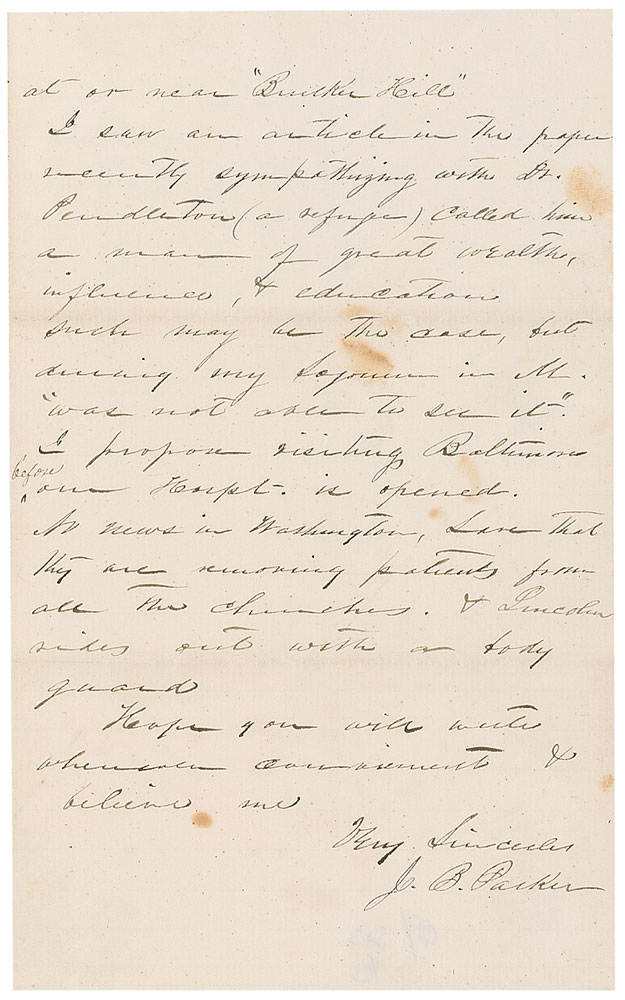 at or near "Bunker Hill"
I saw an article in the paper
recently sympathizing with Dr.
Pendleton (a refuge) called him
a man of great wealth,
influence, & education
such may be the case, but
during my sojourn in M.
"was not able to see it".
I propose visiting Baltimore
before
our Hospt. is opened.
No news in Washington, save that
they are removing patients from
all the churches. & Lincoln
rides out with a body
guard
Hope you will write
whenever convenient &
believe me
Very Sincerely
J. B. Parker